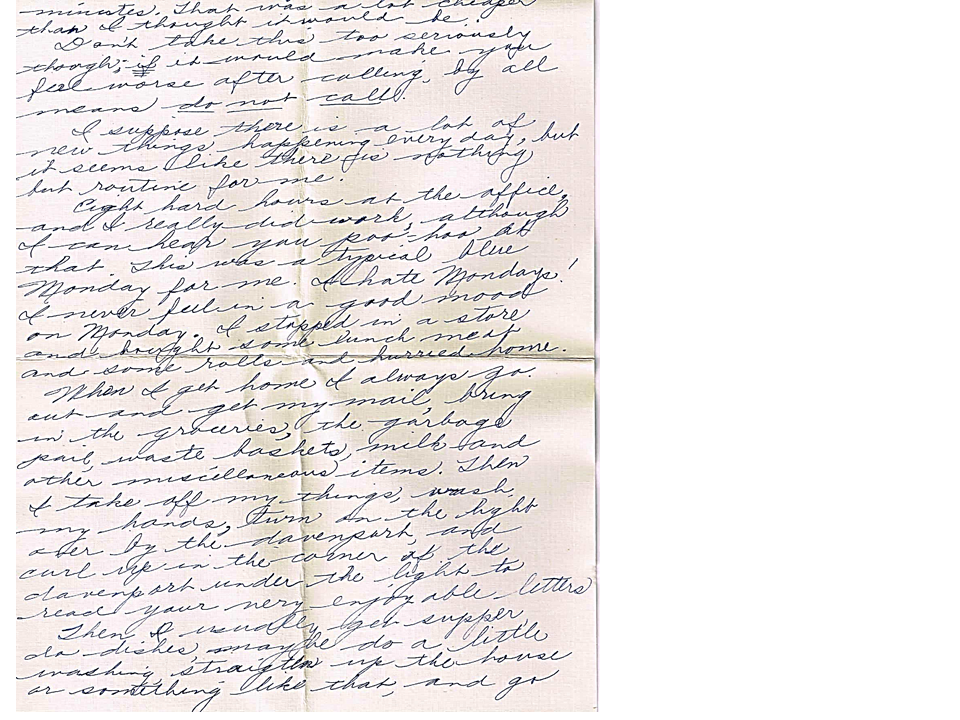 minutes. That was a lot cheaper
than I thought it would be.
Don't take this too seriously
though; if it would make you
feel worse after calling, by all
means do not call.
I suppose there is a lot of
new things happening every day, but
it seems like there is nothing
but routine for me.
Eight hard hours at the office,
and I really did work, although
I can hear you poo-hoo at
that. This was a typical blue
Monday for me. I hate Mondays!
I never feel in a good mood
on Monday. I stopped in a store
and bought some lunch meat
and some rolls and hurried home.
When I get home I always go
out and get my mail, bring
in the groceries, the garbage
pail, waste baskets, milk and
other miscellaneous items. Then
I take off my things, wash
my hands, turn on the light
over by the davenport, and
curl up in the corner of the
davenport under the light to
read your very enjoyable letters
Then I usually get supper,
do dishes maybe do a little
washing, straighten up the house
or something like that, and go